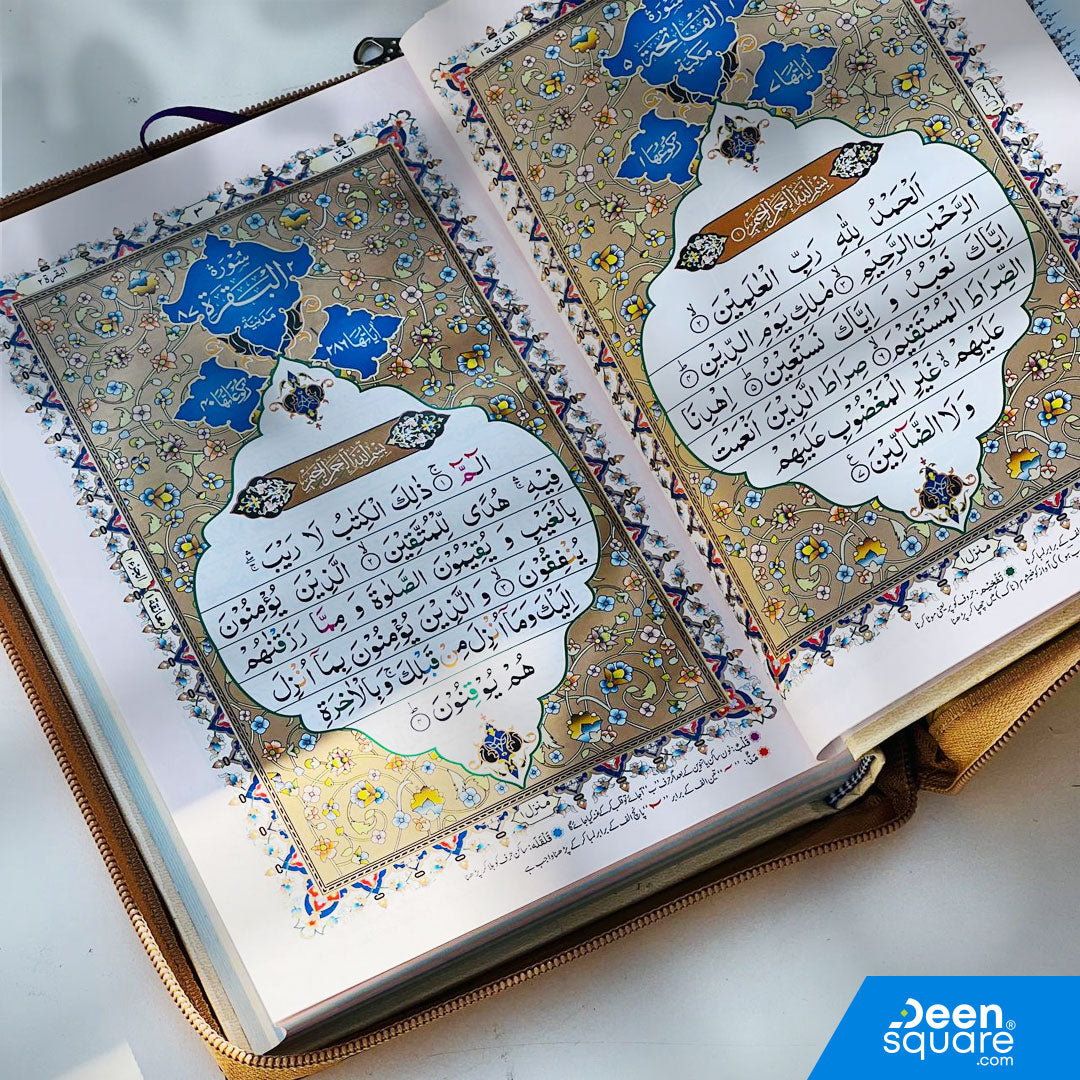 الفاتحة ١
سُورَةُ الْفَاتِحَة
مَكِّيَّة
اٰيَاتُهَا ٧
رُكُوعُهَا ١
بِسْمِ اللّٰهِ الرَّحْمٰنِ الرَّحِيْمِ
اَلْحَمْدُ لِلّٰهِ رَبِّ الْعٰلَمِيْنَ ۙ
الرَّحْمٰنِ الرَّحِيْمِ ۙ مٰلِكِ يَوْمِ الدِّيْنِ ؕ
اِيَّاكَ نَعْبُدُ وَ اِيَّاكَ نَسْتَعِيْنُ ؕ اِهْدِنَا
الصِّرَاطَ الْمُسْتَقِيْمَ ۙ صِرَاطَ الَّذِيْنَ اَنْعَمْتَ
عَلَيْهِمْ ۙ غَيْرِ الْمَغْضُوْبِ عَلَيْهِمْ
وَلَا الضَّآلِّيْنَ
منزل
الٓمٓ ١
٣
البقرة ٢
سُورَةُ الْبَقَرَة
٨٧
اٰيَاتُهَا ٢٨٦
رُكُوعَاتُهَا ٤٠
بِسْمِ اللّٰهِ الرَّحْمٰنِ الرَّحِيْمِ
الٓمّٓ ۚ ذٰلِكَ الْكِتٰبُ لَا رَيْبَ ۛ
فِيْهِ ۛ هُدًى لِّلْمُتَّقِيْنَ ۙ الَّذِيْنَ يُؤْمِنُوْنَ
بِالْغَيْبِ وَ يُقِيْمُوْنَ الصَّلٰوةَ وَ مِمَّا رَزَقْنٰهُمْ
يُنْفِقُوْنَ ۙ وَ الَّذِيْنَ يُؤْمِنُوْنَ بِمَاۤ اُنْزِلَ
اِلَيْكَ وَمَاۤ اُنْزِلَ مِنْ قَبْلِكَ ۚ وَبِالْاٰخِرَةِ
هُمْ يُوْقِنُوْنَ ؕ
منزل
Deen
square®
.com